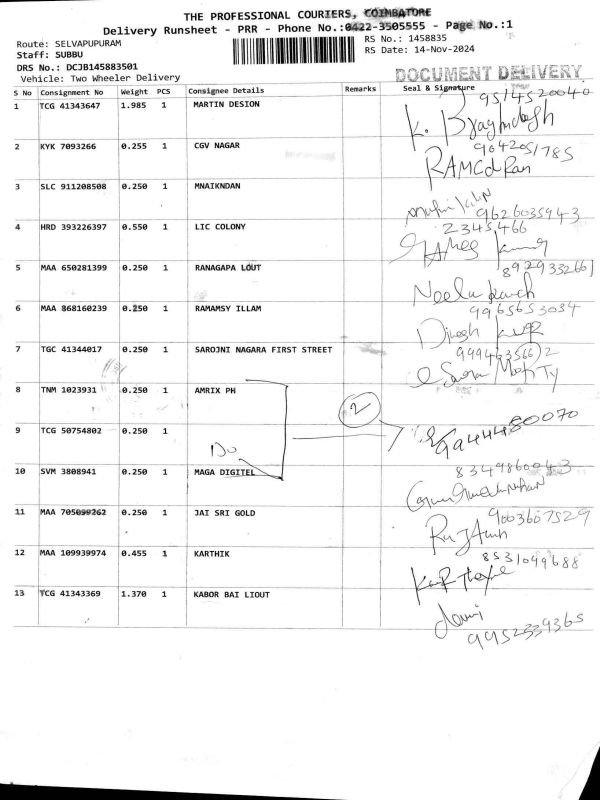 THE PROFESSIONAL COURIERS, COIMBATORE
Delivery Runsheet - PRR - Phone No.:0422-3505555 - Page No.:1
Route: SELVAPUPURAM
Staff: SUBBU
DRS No.: DCJB145883501
Vehicle: Two Wheeler Delivery
RS No.: 1458835
RS Date: 14-Nov-2024
DOCUMENT DELIVERY
S No Consignment No Weight PCS Consignee Details Remarks Seal & Signature
9514520040
1 TCG 41343647 1.985 1 MARTIN DESION
2 KYK 7093266 0.255 1 CGV NAGAR
9042051785
3 SLC 911208508 0.250 1 MNAIKNDAN
9626035943
4 HRD 393226397 0.550 1 LIC COLONY 2345466
5 MAA 650281399 0.250 1 RANAGAPA LOUT 8929332661
6 MAA 868160239 0.250 1 RAMAMSY ILLAM 9965653034
Dinesh
7 TGC 41344017 0.250 1 SAROJNI NAGARA FIRST STREET
8 TNM 1023931 0.250 1 AMRIX PH
2
9 TCG 50754802 0.250 1 9944480070
Do
10 SVM 3808941 0.250 1 MAGA DIGITEL 8349860043
11 MAA 705099262 0.250 1 JAI SRI GOLD 9003607529
12 MAA 109939974 0.455 1 KARTHIK 8531049688
13 TCG 41343369 1.370 1 KABOR BAI LIOUT
9952339365